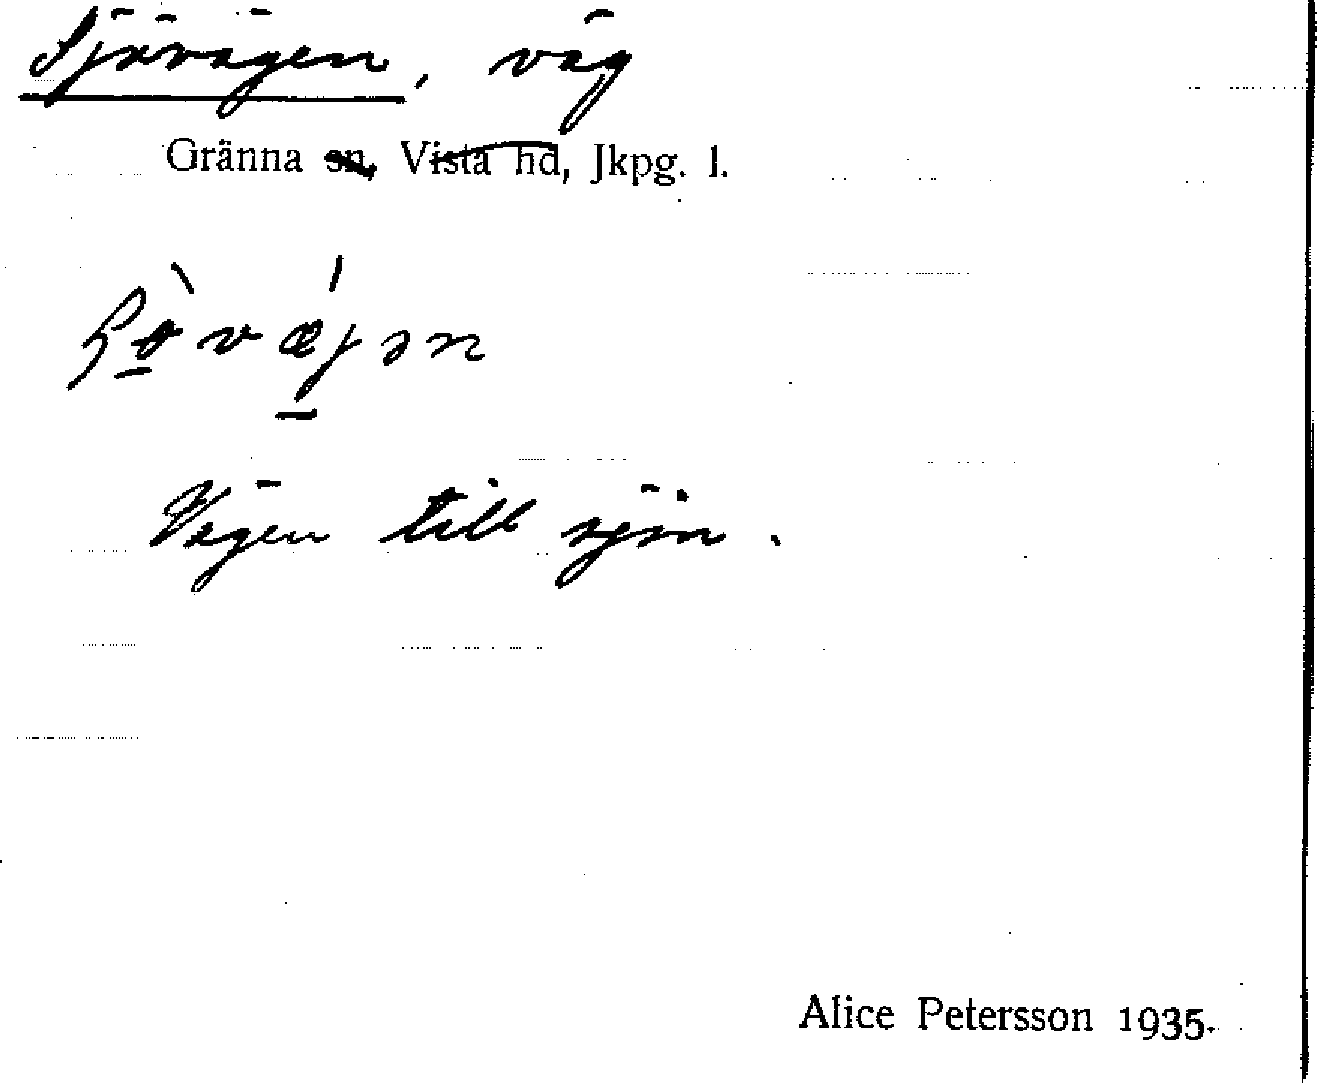 Sjövägen, väg
Gränna sn, Vista hd, Jkpg. l.
Vägen till sjön.
Alice Petersson 1935.